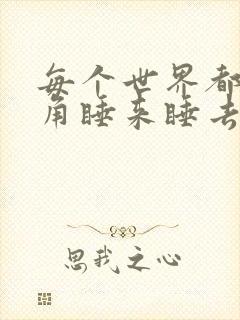 每个世界都
角睡来睡去
思我之心